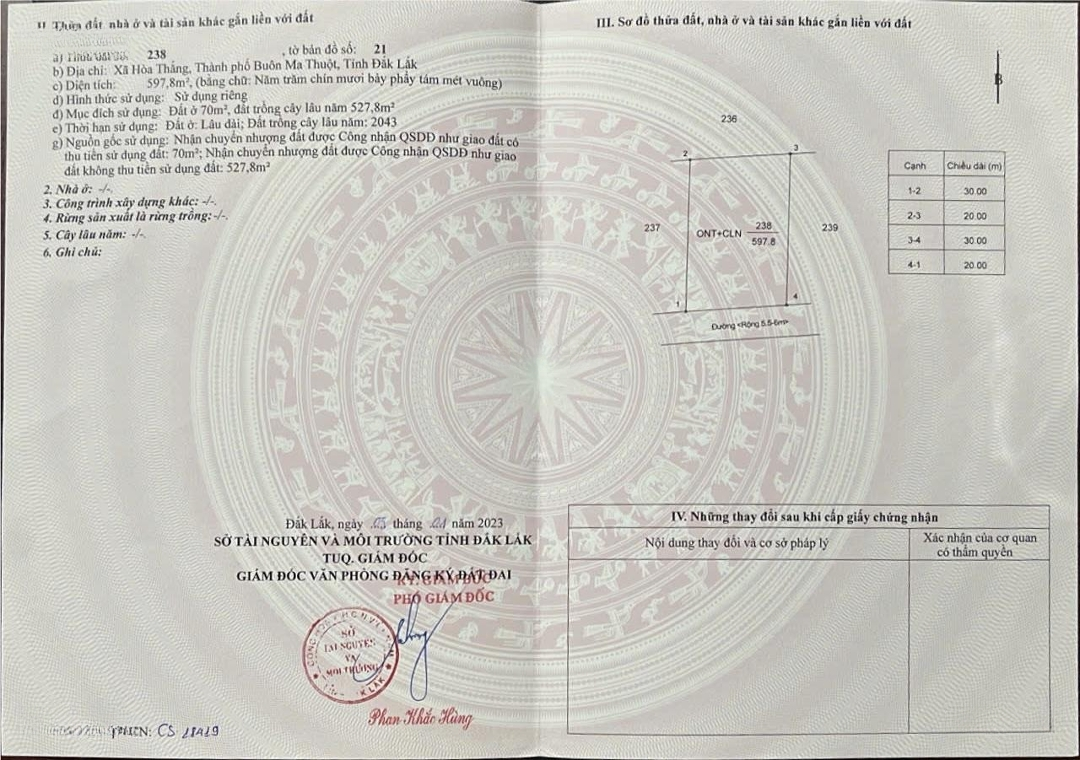 II Thửa đất, nhà ở và tài sản khác gắn liền với đất
238 , tờ bản đồ số: 21
b) Địa chỉ: Xã Hòa Thắng, Thành phố Buôn Ma Thuột, Tỉnh Đắk Lắk
c) Diện tích: 597,8m², (bằng chữ: Năm trăm chín mươi bảy phẩy tám mét vuông)
d) Hình thức sử dụng: Sử dụng riêng
đ) Mục đích sử dụng: Đất ở 70m², đất trồng cây lâu năm 527,8m²
e) Thời hạn sử dụng: Đất ở: Lâu dài; Đất trồng cây lâu năm: 2043
g) Nguồn gốc sử dụng: Nhận chuyển nhượng đất được Công nhận QSDĐ như giao đất có
thu tiền sử dụng đất: 70m²; Nhận chuyển nhượng đất được Công nhận QSDĐ như giao
đất không thu tiền sử dụng đất: 527,8m²
2. Nhà ở: -/-.
3. Công trình xây dựng khác: -/-.
4. Rừng sản xuất là rừng trồng:-/-.
5. Cây lâu năm: -/-.
6. Ghi chú:
Đắk Lắk, ngày 05 tháng 01 năm 2023
SỞ TÀI NGUYÊN VÀ MÔI TRƯỜNG TỈNH ĐẮK LẮK
TUQ. GIÁM ĐỐC
GIÁM ĐỐC VĂN PHÒNG ĐĂNG KÝ ĐẤT ĐAI
KT. GIÁM ĐỐC
PHÓ GIÁM ĐỐC
SỞ
TÀI NGUYÊN
VÀ
MÔI TRƯỜNG
Phan Khắc Hùng
CS
III. Sơ đồ thửa đất, nhà ở và tài sản khác gắn liền với đất
B
236
2 3
237 ONT+CLN 238 239
597.8
1 4
Đường <Rộng 5.5-6m>
Cạnh Chiều dài (m)
1-2 30.00
2-3 20.00
3-4 30.00
4-1 20.00
IV. Những thay đổi sau khi cấp giấy chứng nhận
Nội dung thay đổi và cơ sở pháp lý
Xác nhận của cơ quan
có thẩm quyền